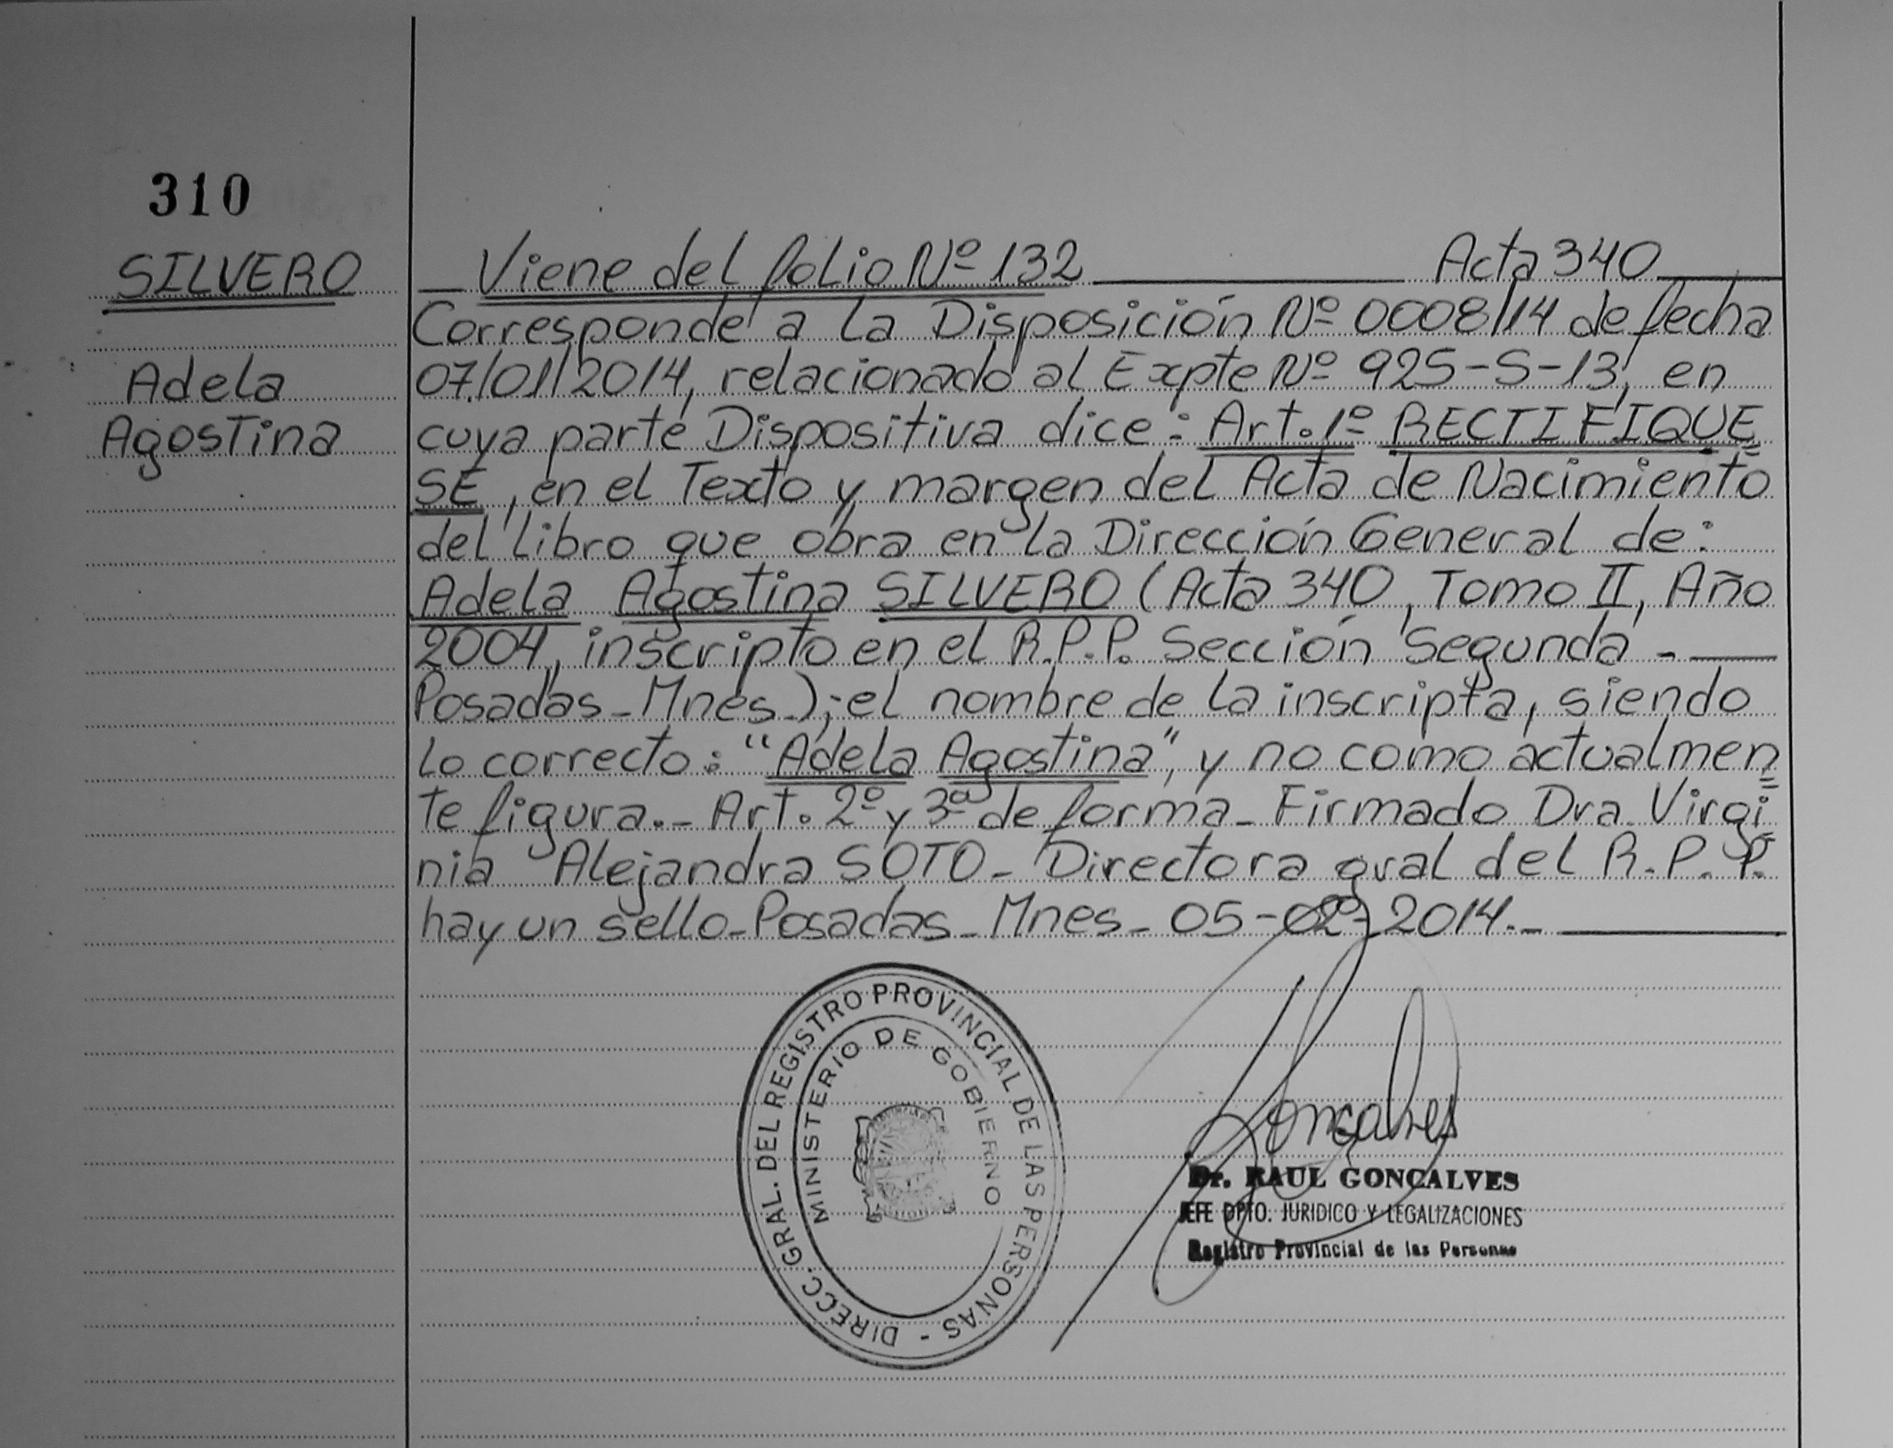 310
SILVERO
Adela
Agostina
Viene del folio Nº 132 Acta 340
Corresponde a la Disposición Nº 0008/14 de fecha
07/01/2014, relacionado al Expte Nº 925-S-13, en
cuya parte Dispositiva dice: Art. 1º RECTIFIQUE=
SE, en el Texto y margen del Acta de Nacimiento
del libro que obra en la Dirección General de:
Adela Agostina SILVERO (Acta 340, Tomo II, Año
2004, inscripto en el R.P.P. Sección Segunda -
Posadas - Mnes.); el nombre de la inscripta, siendo
lo correcto: "Adela Agostina", y no como actualmen=
te figura.- Art. 2º y 3º de forma - Firmado Dra. Virgi=
nia Alejandra SOTO - Directora gral del R.P.P.
hay un sello - Posadas - Mnes - 05-02-2014.-
DIRECC. GRAL. DEL REGISTRO PROVINCIAL DE LAS PERSONAS -
MINISTERIO DE GOBIERNO
Goncalves
Dr. RAUL GONCALVES
JEFE DPTO. JURIDICO Y LEGALIZACIONES
Registro Provincial de las Personas